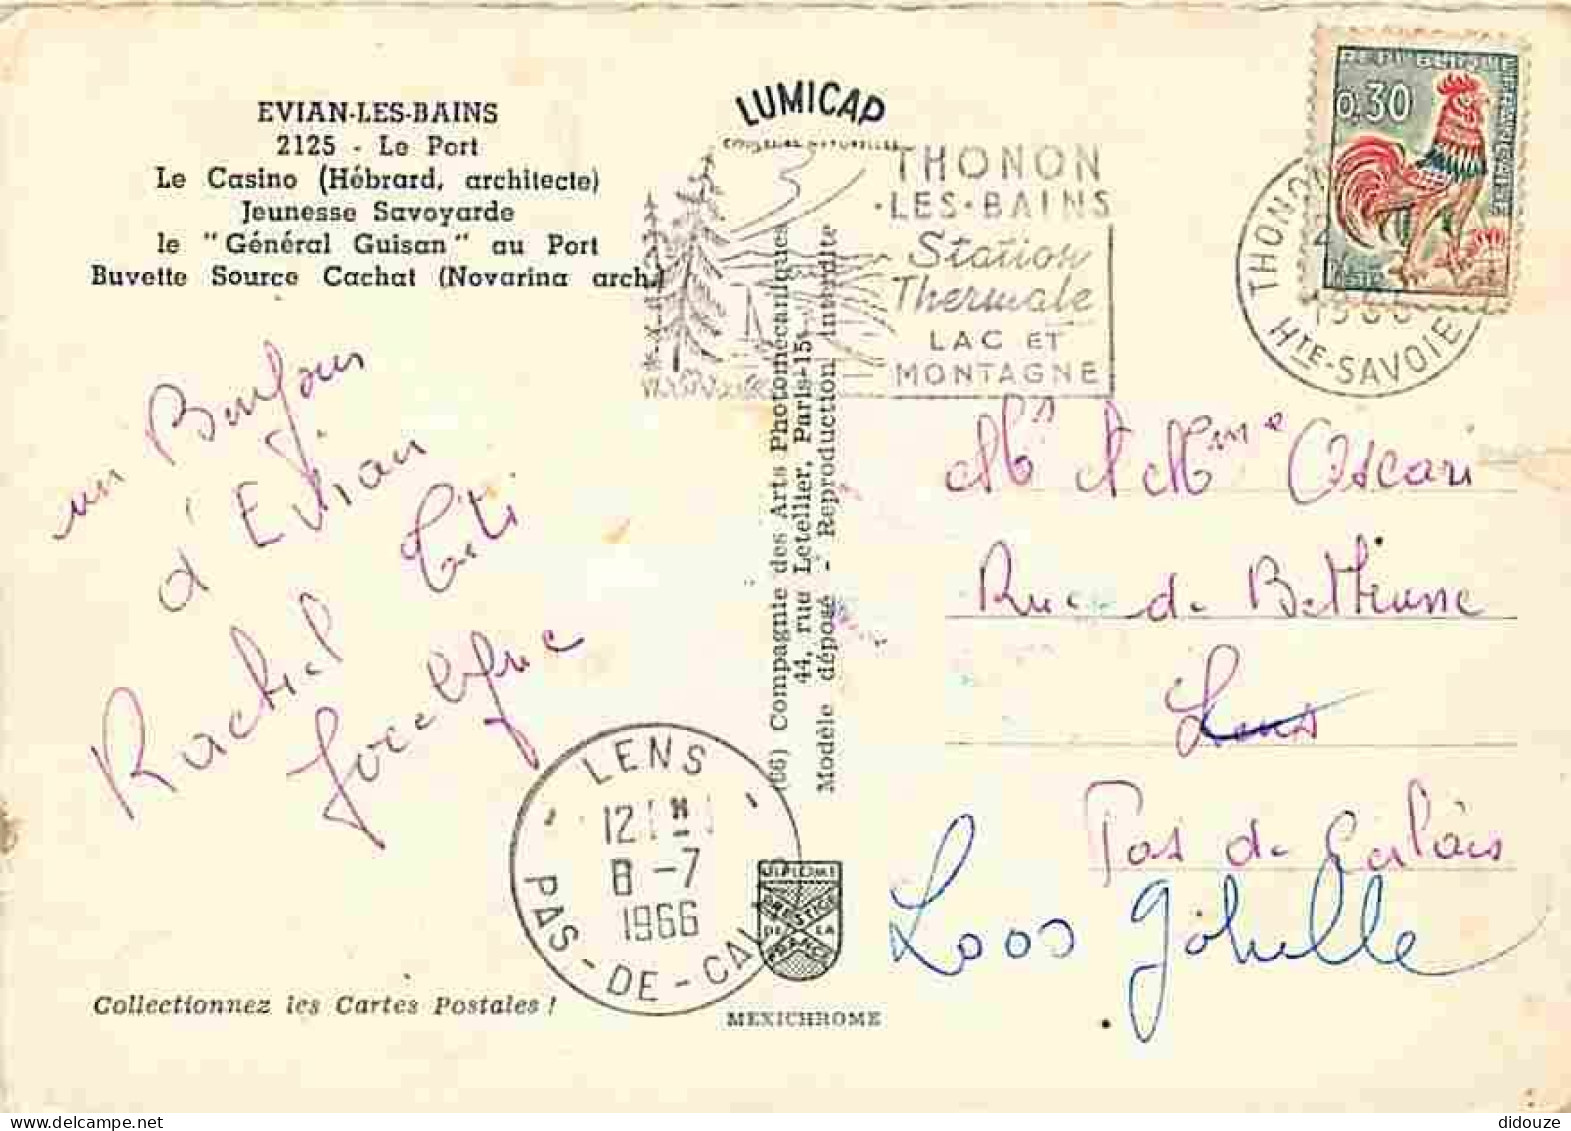 EVIAN-LES-BAINS
2125 - Le Port
Le Casino (Hébrard, architecte)
Jeunesse Savoyarde
le "Général Guisan" au Port
Buvette Source Cachat (Novarina arch.)
LUMICAP
COULEURS NATURELLES
THONON
·LES·BAINS
Station
Thermale
LAC ET
MONTAGNE
REPUBLIQUE FRANCAISE
0,30
POSTES
THONON
1966
HTE-SAVOIE
un Bonjour
d'Evian
Rachel
Jocelyne
(66) Compagnie des Arts Photomécaniques
44, rue Letellier, Paris-15e
Modèle déposé - Reproduction interdite
Mr & Mme Oscari
Rue de Béthune
Lens
Pas de Calais
Loos Gohelle
LENS
12 H
8 -7
1966
PAS-DE-CALAIS
DIPLOME
PRESTIGE
DE LA
FRANCE
MEXICHROME
Collectionnez les Cartes Postales !
delcampe.net
didouze